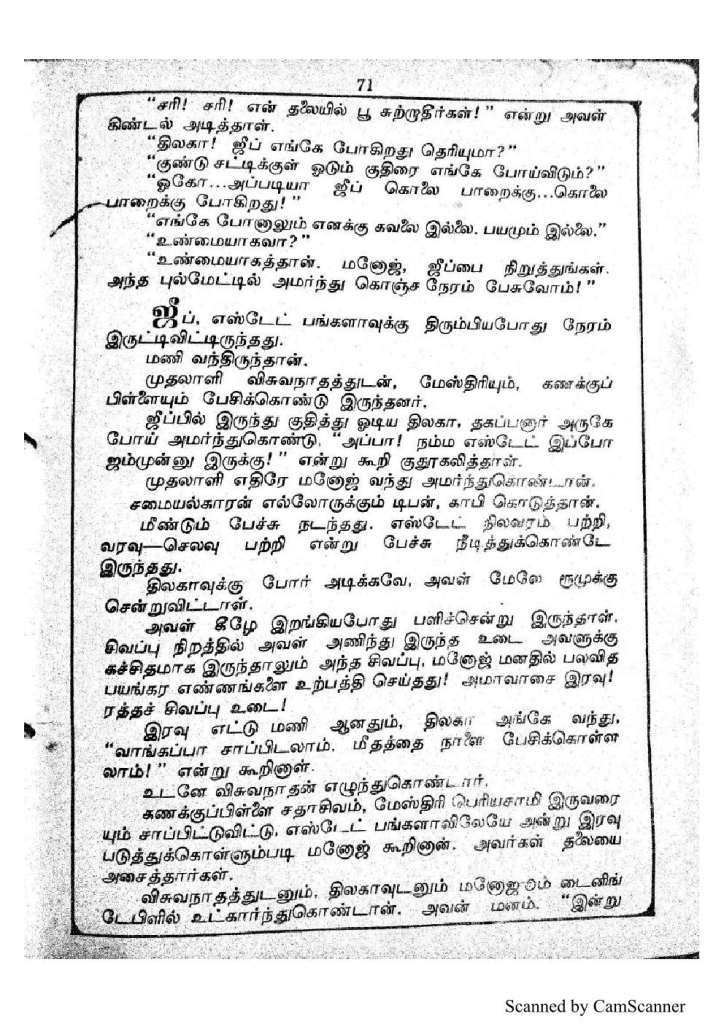 71
“சரி! சரி! என் தலையில் பூ சுற்றுதீர்கள்!” என்று அவள்
கிண்டல் அடித்தாள்.
“திலகா! ஜீப் எங்கே போகிறது தெரியுமா?”
“குண்டு சட்டிக்குள் ஓடும் குதிரை எங்கே போய்விடும்?”
“ஓகோ...அப்படியா ஜீப் கொலை பாறைக்கு...கொலை
பாறைக்கு போகிறது!”
“எங்கே போனாலும் எனக்கு கவலை இல்லை. பயமும் இல்லை.”
“உண்மையாகவா?”
“உண்மையாகத்தான். மனோஜ், ஜீப்பை நிறுத்துங்கள்.
அந்த புல்மேட்டில் அமர்ந்து கொஞ்ச நேரம் பேசுவோம்!”
ஜீப், எஸ்டேட் பங்களாவுக்கு திரும்பியபோது நேரம்
இருட்டிவிட்டிருந்தது.
மணி வந்திருந்தான்.
முதலாளி விசுவநாதத்துடன், மேஸ்திரியும், கணக்குப்
பிள்ளையும் பேசிக்கொண்டு இருந்தனர்.
ஜீப்பில் இருந்து குதித்து ஓடிய திலகா, தகப்பனார் அருகே
போய் அமர்ந்துகொண்டு, “அப்பா! நம்ம எஸ்டேட் இப்போ
ஜம்முன்னு இருக்கு!” என்று கூறி குதூகலித்தாள்.
முதலாளி எதிரே மனோஜ் வந்து அமர்ந்துகொண்டான்.
சமையல்காரன் எல்லோருக்கும் டிபன், காபி கொடுத்தான்.
மீண்டும் பேச்சு நடந்தது. எஸ்டேட் நிலவரம் பற்றி,
வரவு—செலவு பற்றி என்று பேச்சு நீடித்துக்கொண்டே
இருந்தது.
திலகாவுக்கு போர் அடிக்கவே, அவள் மேலே ரூமுக்கு
சென்றுவிட்டாள்.
அவள் கீழே இறங்கியபோது பளிச்சென்று இருந்தாள்.
சிவப்பு நிறத்தில் அவள் அணிந்து இருந்த உடை அவளுக்கு
கச்சிதமாக இருந்தாலும் அந்த சிவப்பு, மனோஜ் மனதில் பலவித
பயங்கர எண்ணங்களை உற்பத்தி செய்தது! அமாவாசை இரவு!
ரத்தச் சிவப்பு உடை!
இரவு எட்டு மணி ஆனதும், திலகா அங்கே வந்து,
“வாங்கப்பா சாப்பிடலாம். மீதத்தை நாளை பேசிக்கொள்ள
லாம்!” என்று கூறினாள்.
உடனே விசுவநாதன் எழுந்துகொண்டார்.
கணக்குப்பிள்ளை சதாசிவம், மேஸ்திரி பெரியசாமி இருவரை
யும் சாப்பிட்டுவிட்டு, எஸ்டேட் பங்களாவிலேயே அன்று இரவு
படுத்துக்கொள்ளும்படி மனோஜ் கூறினான். அவர்கள் தலையை
அசைத்தார்கள்.
விசுவநாதத்துடனும், திலகாவுடனும் மனோஜும் டைனிங்
டேபிளில் உட்கார்ந்துகொண்டான். அவன் மனம், “இன்று
Scanned by CamScanner